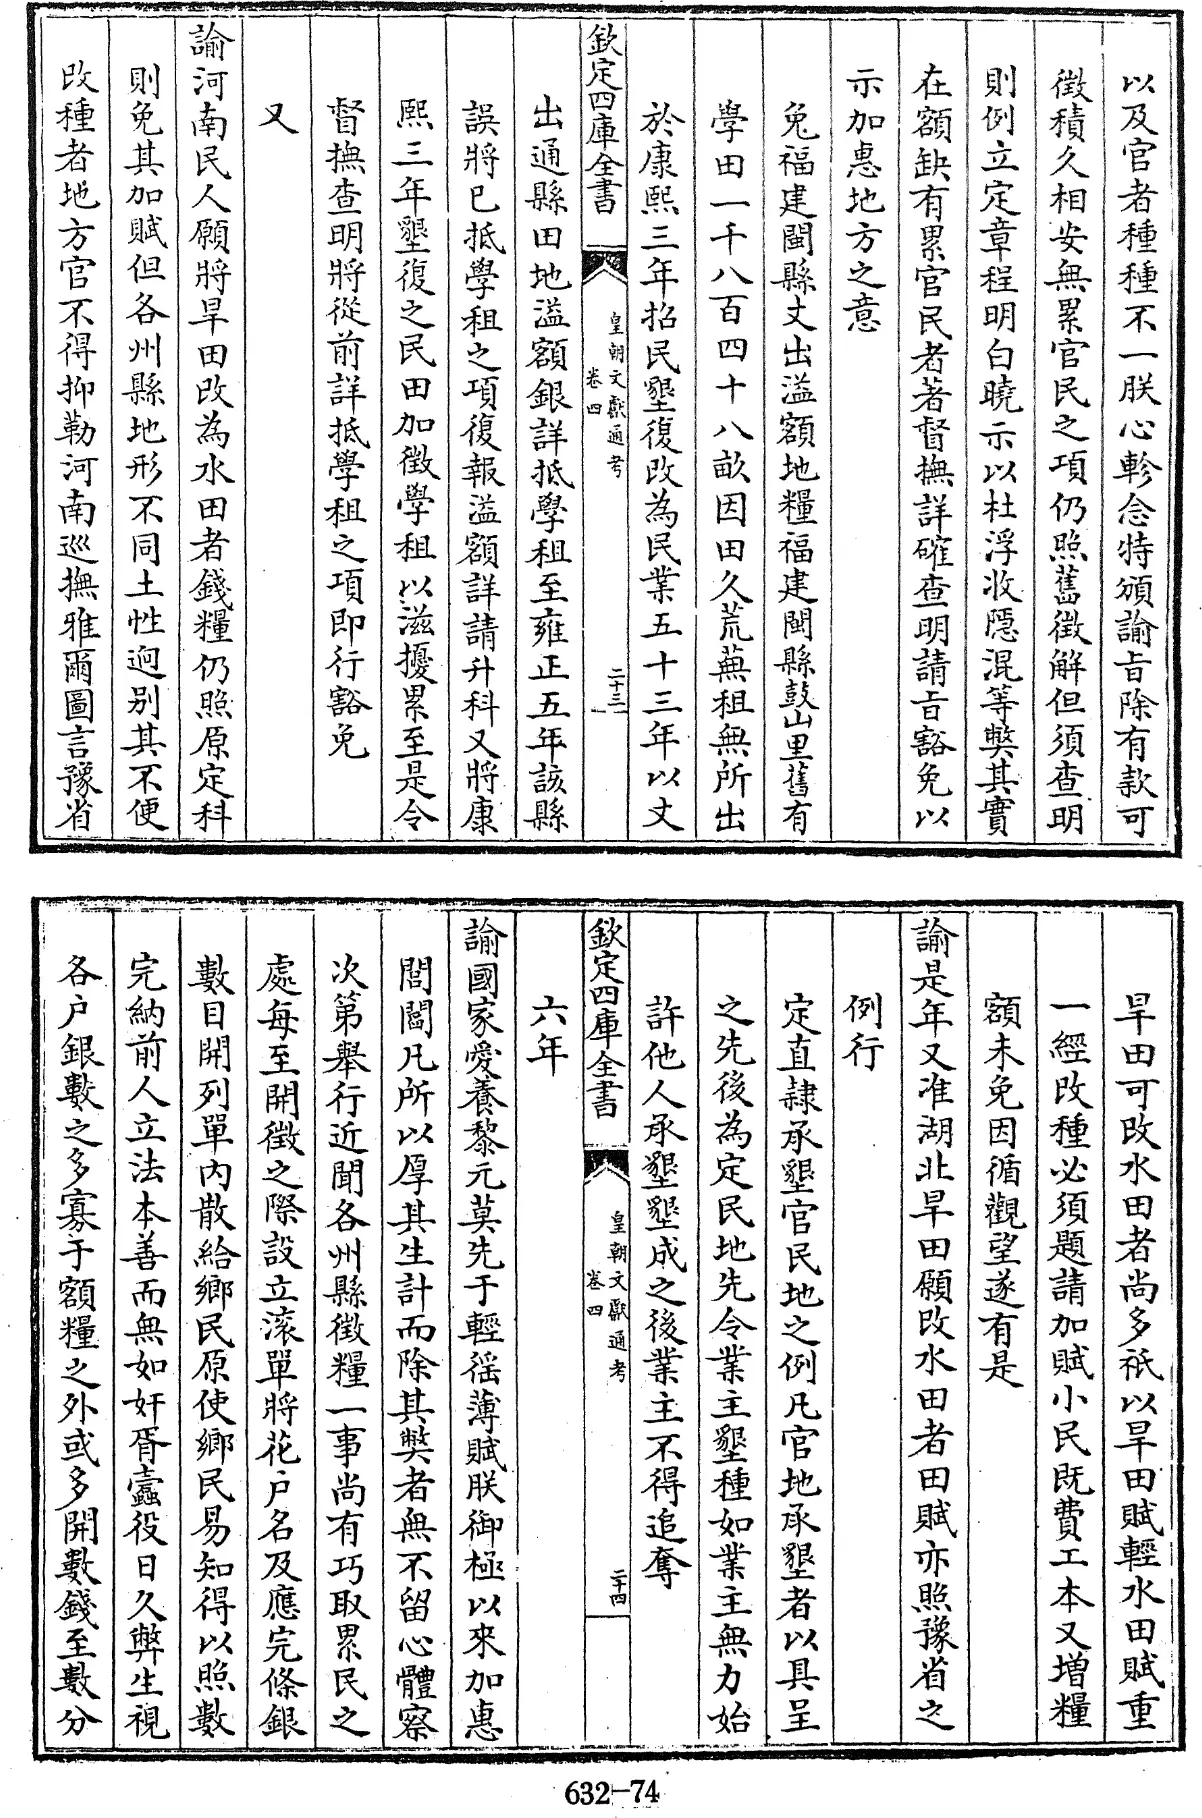 以及官者種種不一朕心軫念特頒諭旨除有款可
徵積久相安無累官民之項仍照舊徵解但須查明
則例立定章程明白曉示以杜浮收隱混等弊其實
在額缺有累官民者著督撫詳確查明請旨豁免以
示加惠地方之意
免福建閩縣丈出溢額地糧福建閩縣鼓山里舊有
學田一千八百四十八畝因田久荒蕪租無所出
於康熙三年招民墾復改為民業五十三年以丈
欽定四庫全書
皇朝文獻通考
卷四
二十三
出通縣田地溢額銀詳抵學租至雍正五年該縣
誤將已抵學租之項復報溢額詳請升科又將康
熙三年墾復之民田加徵學租以滋擾累至是令
督撫查明將從前詳抵學租之項即行豁免
又
諭河南民人願將旱田改為水田者錢糧仍照原定科
則免其加賦但各州縣地形不同土性迥别其不便
改種者地方官不得抑勒河南巡撫雅爾圖言豫省
旱田可改水田者尚多祇以旱田賦輕水田賦重
一經改種必須題請加賦小民既費工本又增糧
額未免因循觀望遂有是
諭是年又准湖北旱田願改水田者田賦亦照豫省之
例行
定直隸承墾官民地之例凡官地承墾者以具呈
之先後為定民地先令業主墾種如業主無力始
許他人承墾墾成之後業主不得追奪
欽定四庫全書
皇朝文獻通考
卷四
二十四
六年
諭國家愛養黎元莫先于輕徭薄賦朕御極以來加惠
閭閻凡所以厚其生計而除其弊者無不留心體察
次第舉行近聞各州縣徵糧一事尚有巧取累民之
處每至開徵之際設立滚單將花户名及應完條銀
數目開列單内散給鄉民原使鄉民易知得以照數
完納前人立法本善而無如奸胥蠧役日久弊生視
各户銀數之多寡于額糧之外或多開數錢至數分
632-74